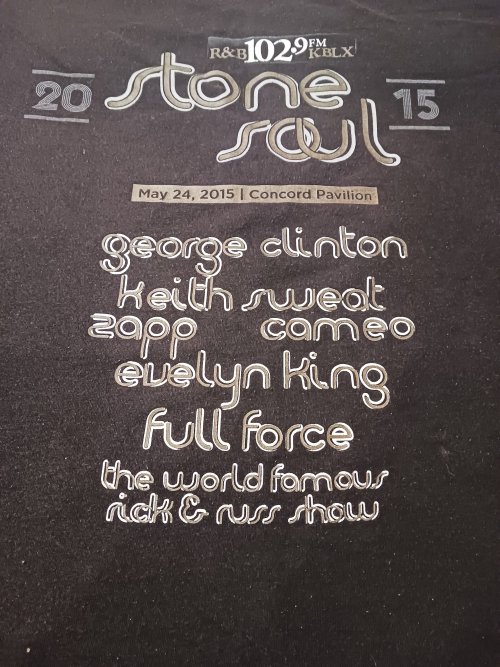 R&B 102.9 FM KBLX
20 stone 15
soul
May 24, 2015 | Concord Pavilion
george clinton
keith sweat
zapp cameo
evelyn king
full force
the world famous
rick & russ show